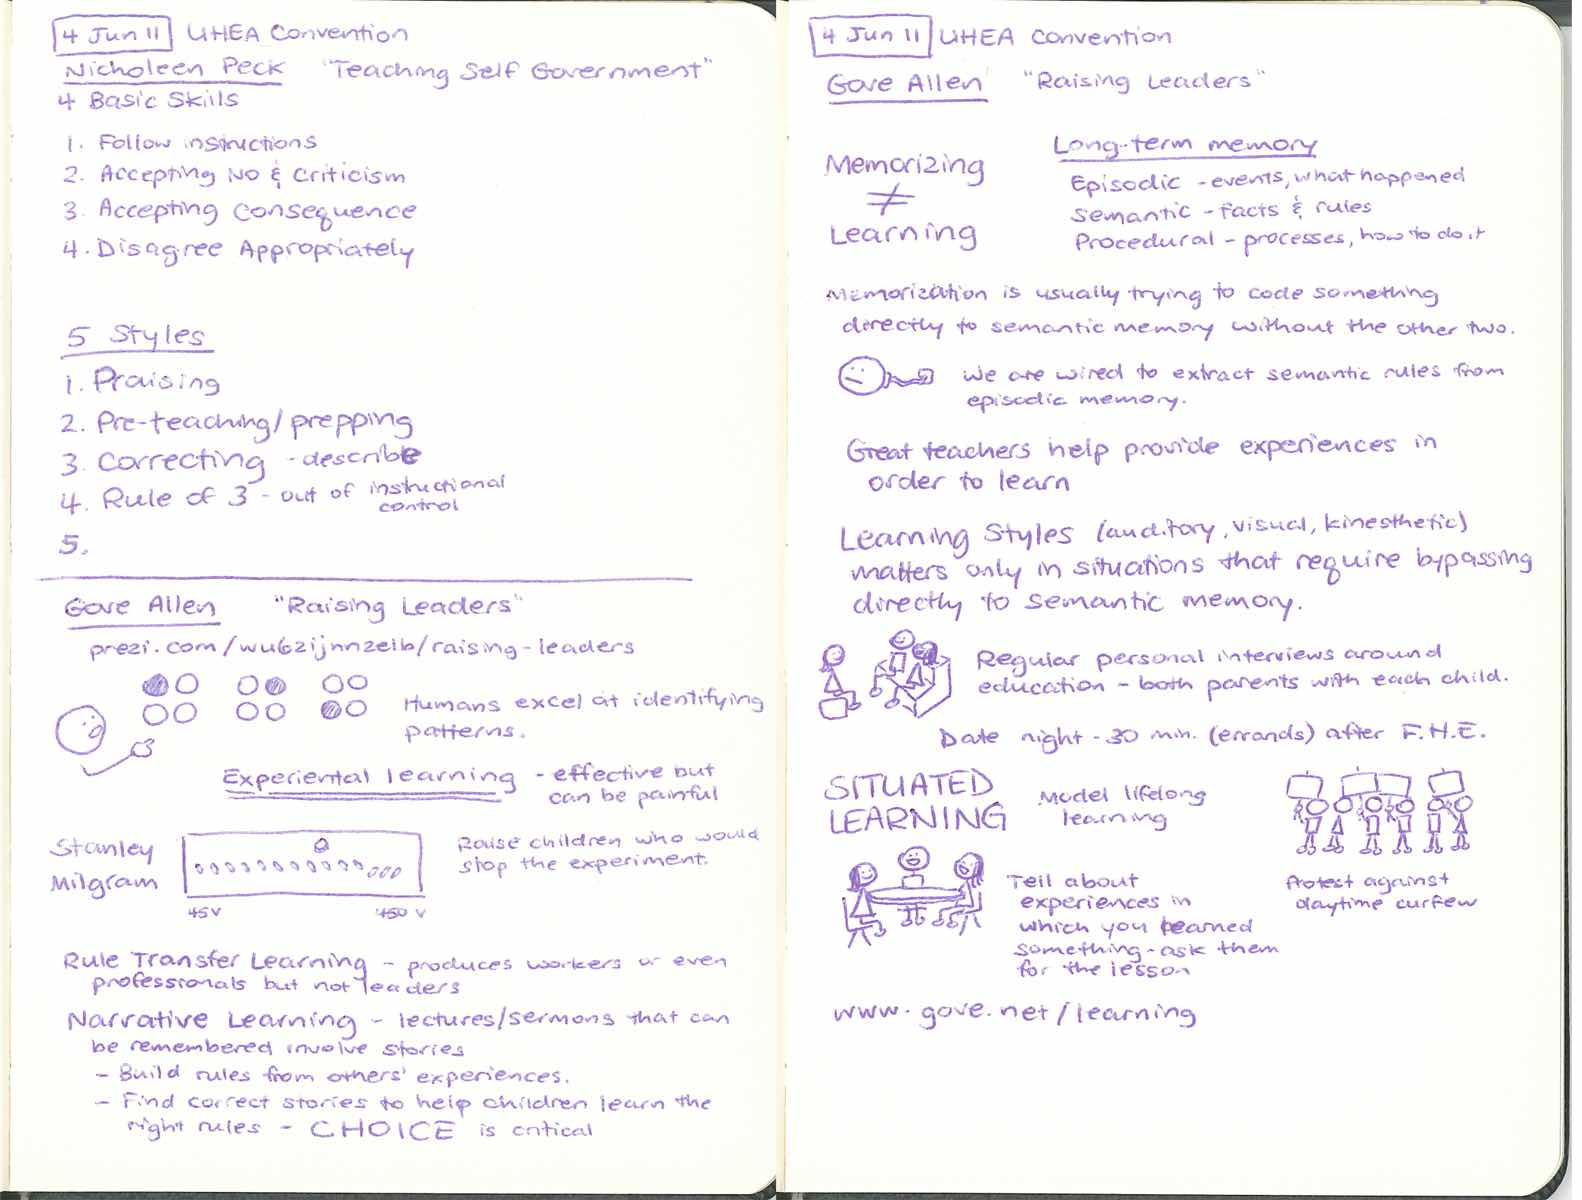 4 Jun 11 UHEA Convention
Nicholeen Peck "Teaching Self Government"
4 Basic Skills
1. Follow instructions
2. Accepting No & Criticism
3. Accepting Consequence
4. Disagree Appropriately
5 Styles
1. Praising
2. Pre-teaching/prepping
3. Correcting - describe
4. Rule of 3 - out of instructional
control
5.
Gove Allen "Raising Leaders"
prezi.com/wu6zijnnzeib/raising-leaders
Humans excel at identifying
patterns.
Experiental learning - effective but
can be painful
Stanley
Milgram
45V 450 V
Raise children who would
stop the experiment.
Rule Transfer Learning - produces workers or even
professionals but not leaders
Narrative Learning - lectures/sermons that can
be remembered involve stories
- Build rules from others' experiences.
- Find correct stories to help children learn the
right rules - CHOICE is critical
4 Jun 11 UHEA Convention
Gove Allen "Raising Leaders"
Memorizing
≠
Learning
Long-term memory
Episodic - events, what happened
Semantic - facts & rules
Procedural - processes, how to do it
Memorization is usually trying to code something
directly to semantic memory without the other two.
We are wired to extract semantic rules from
episodic memory.
Great teachers help provide experiences in
order to learn
Learning Styles (auditory, visual, kinesthetic)
matters only in situations that require bypassing
directly to semantic memory.
Regular personal interviews around
education - both parents with each child.
Date night - 30 min. (errands) after F.H.E.
SITUATED
LEARNING
Model lifelong
learning
Tell about
experiences in
which you learned
something - ask them
for the lesson
Protest against
daytime curfew
www.gove.net/learning